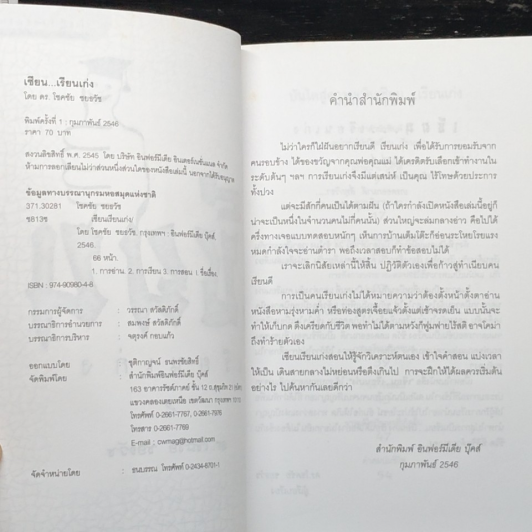 เซียน...เรียนเก่ง
โดย ดร. โชคชัย ชยธวัช
พิมพ์ครั้งที่ 1 : กุมภาพันธ์ 2546
ราคา 70 บาท
สงวนลิขสิทธิ์ พ.ศ. 2545 โดย บริษัท อินฟอร์มีเดีย อินเตอร์เนชั่นแนล จำกัด
ห้ามการลอกเลียนไม่ว่าส่วนหนึ่งส่วนใดของหนังสือเล่มนี้ นอกจากได้รับอนุญาต
ข้อมูลทางบรรณานุกรมหอสมุดแห่งชาติ
371.30281 โชคชัย ชยธวัช
ช813ซ เซียนเรียนเก่ง/
โดย โชคชัย ชยธวัช. กรุงเทพฯ : อินฟอร์มีเดีย บุ๊คส์,
2545.
68 หน้า.
1. การอ่าน 2. การเรียน 3. การสอน I ชื่อเรื่อง.
ISBN : 974-90980-4-8
กรรมการผู้จัดการ : วรรณา สวัสดิภักดิ์
บรรณาธิการอำนวยการ : สมพงษ์ สวัสดิภักดิ์
บรรณาธิการบริหาร : จตุรงค์ กอบแก้ว
ออกแบบโดย : ชุติกาญจน์ ธนพรชัยสิทธิ์
จัดพิมพ์โดย : สำนักพิมพ์อินฟอร์มีเดีย บุ๊คส์
163 อาคารรัชต์ภาคย์ ชั้น 12 ถ.สุขุมวิท 21 (อโศก)
แขวงคลองเตยเหนือ เขตวัฒนา กรุงเทพฯ 10110
โทรศัพท์ 0-2661-7767, 0-2661-7976
โทรสาร 0-2661-7769
E-mail ; cwmag@hotmail.com
จัดจำหน่ายโดย : ธนบรรณ โทรศัพท์ 0-2434-8701-1
คำนำสำนักพิมพ์
ไม่ว่าใครก็ไม่ฝันอยากเรียนดี เรียนเก่ง เพื่อได้รับการยอมรับจาก
คนรอบข้าง ได้ของขวัญจากคุณพ่อคุณแม่ ได้เครดิตรับเลือกเข้าทำงานใน
ระดับต้นๆ ฯลฯ การเรียนเก่งจึงมีแต่เสน่ห์ เป็นคุณ ไร้โทษด้วยประการ
ทั้งปวง
แต่จะมีสักกี่คนเป็นได้ตามฝัน (ถ้าใครกำลังเปิดหนังสือเล่มนี้อยู่ก็
น่าจะเป็นหนึ่งในจำนวนคนไม่กี่คนนั้น) ส่วนใหญ่จะล่มกลางอ่าว คือไปได้
ครึ่งทางเจอแบบทดสอบหนักๆ เห็นการบ้านเต็มโต๊ะก็อ่อนระโหยโรยแรง
หมดกำลังใจจะอ่านตำรา พอถึงเวลาสอบก็ทำข้อสอบไม่ได้
เราจะเลิกนิสัยเหล่านี้ให้สิ้น ปฏิวัติตัวเองเพื่อก้าวสู่ทำเนียบคน
เรียนดี
การเป็นคนเรียนเก่งไม่ได้หมายความว่าต้องตั้งหน้าตั้งตาอ่าน
หนังสือหามรุ่งหามค่ำ หรือท่องสูตรเจื้อยแจ้วตั้งแต่เช้าจรดเย็น แบบนั้นจะ
ทำให้เก็บกด ตึงเครียดกับชีวิต พอทำไม่ได้ตามหวังก็ฟูมฟายไร้สติ อาจโคม่า
ถึงทำร้ายตัวเอง
เซียนเรียนเก่งสอนให้รู้จักวิเคราะห์ตนเอง เข้าใจคำสอน แบ่งเวลา
ให้เป็น เดินสายกลางไม่หย่อนหรือตึงเกินไป การจะฝึกให้ได้ผลควรเริ่มต้น
อย่างไร ไปค้นหากันเลยดีกว่า
สำนักพิมพ์ อินฟอร์มีเดีย บุ๊คส์
กุมภาพันธ์ 2546